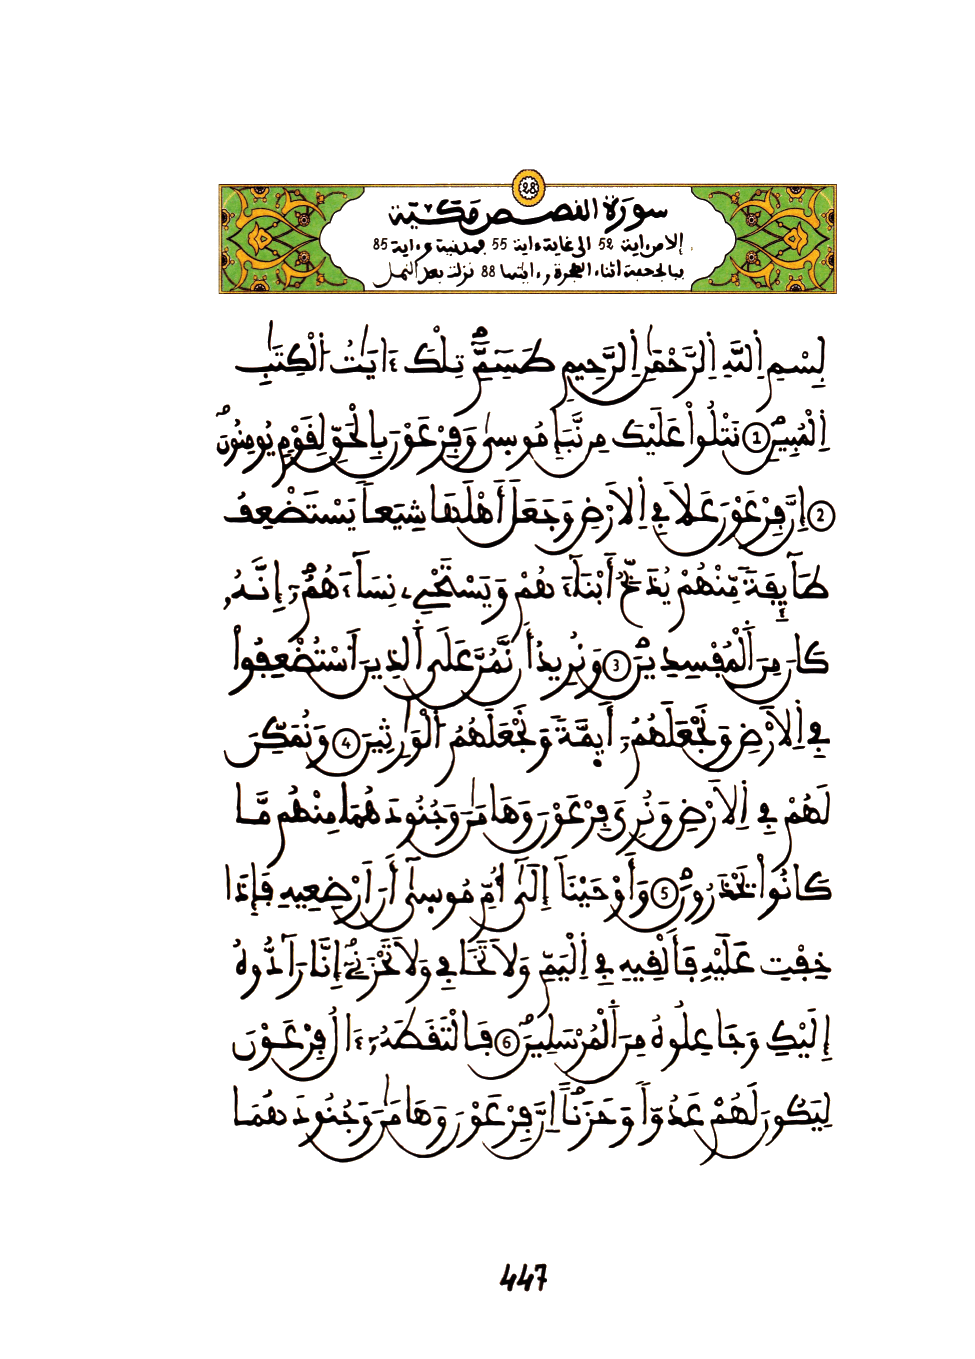 28
سورة القصص مكية
إلا من ءاية 52 الى غاية ءاية 55 فمدنية وءاية 85
فبالجحفة أثناء الهجرة وءايتها 88 نزلت بعد النمل
بِسْمِ اِ۬للَّهِ اِ۬لرَّحْمَٰنِ اِ۬لرَّحِيمِ طَسِٓمِّٓ تِلْكَ ءَايَٰتُ اُ۬لْكِتَٰبِ
اِ۬لْمُبِينِ 1 نَتْلُواْ عَلَيْكَ مِن نَّبَإِ مُوسىٰ وَفِرْعَوْنَ بِالْحَقِّ لِقَوْمٍ يُومِنُونَ
2 إِنَّ فِرْعَوْنَ عَلَا فِي اِ۬لَارْضِ وَجَعَلَ أَهْلَهَا شِيَعاً يَسْتَضْعِفُ
طَآئِفَةً مِّنْهُمْ يُذَبِّحُ أَبْنَآءَهُمْ وَيَسْتَحْيِۦ نِسَآءَهُمُۥٓ إِنَّهُۥ
كَانَ مِنَ اَ۬لْمُفْسِدِينَ 3 وَنُرِيدُ أَن نَّمُنَّ عَلَى اَ۬لذِينَ اَ۟سْتُضْعِفُواْ
فِي اِ۬لَارْضِ وَنَجْعَلَهُمُۥٓ أَيِمَّةً وَنَجْعَلَهُمُ اُ۬لْوَٰرِثِينَ 4 وَنُمَكِّنَ
لَهُمْ فِي اِ۬لَارْضِ وَنُرِيَ فِرْعَوْنَ وَهَامَٰنَ وَجُنُودَهُمَا مِنْهُم مَّا
كَانُواْ يَحْذَرُونَ 5 وَأَوْحَيْنَآ إِلَىٰٓ أُمِّ مُوسىٰٓ أَنَ اَرْضِعِيهِ فَإِذَا
خِفْتِ عَلَيْهِ فَأَلْقِيهِ فِي اِ۬لْيَمِّ وَلَا تَخَافِي وَلَا تَحْزَنِيٓ إِنَّا رَآدُّوهُ
إِلَيْكِ وَجَاعِلُوهُ مِنَ اَ۬لْمُرْسَلِينَ 6 فَالْتَقَطَهُۥٓ ءَالُ فِرْعَوْنَ
لِيَكُونَ لَهُمْ عَدُوّاً وَحَزَناً اِنَّ فِرْعَوْنَ وَهَامَٰنَ وَجُنُودَهُمَا
447